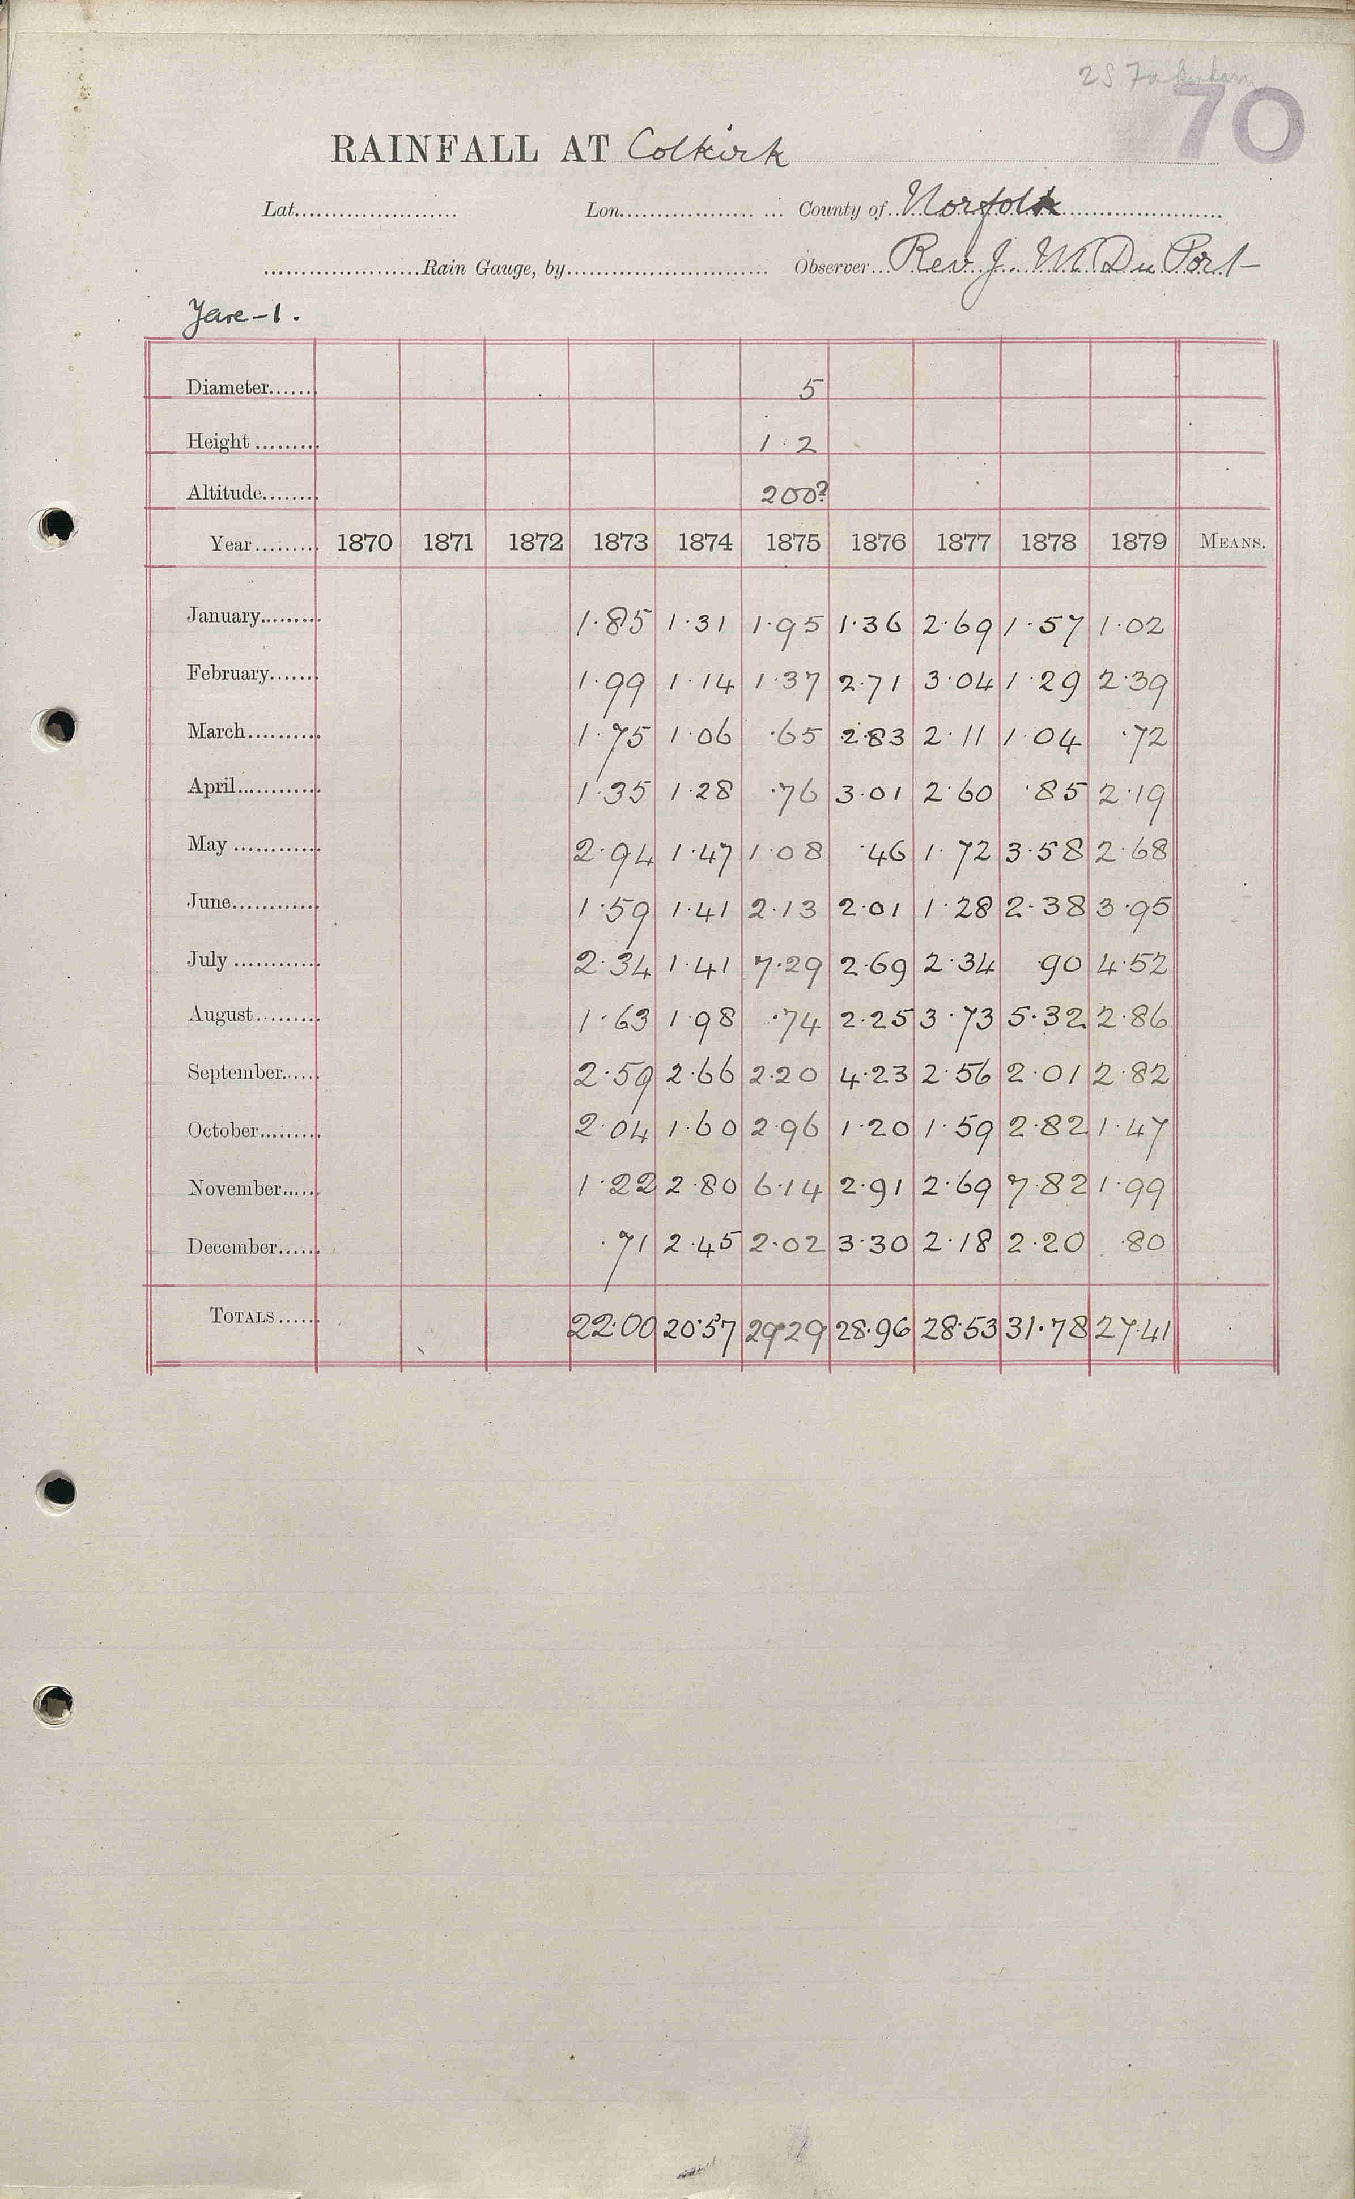 2 S Fakenham
70
RAINFALL AT Colkirk
Lat. Lon. County of Norfolk
Rain Gauge, by Observer Rev. J. M. Du Port
Yare-1.
Diameter 5
Height 1·2
Altitude 200?
Year 1870 1871 1872 1873 1874 1875 1876 1877 1878 1879 MEANS.
January 1·85 1·31 1·95 1·36 2·69 1·57 1·02
February 1·99 1·14 1·37 2·71 3·04 1·29 2·39
March 1·75 1·06 ·65 2·83 2·11 1·04 ·72
April 1·35 1·28 ·76 3·01 2·60 ·85 2·19
May 2·94 1·47 1·08 ·46 1·72 3·58 2·68
June 1·59 1·41 2·13 2·01 1·28 2·38 3·95
July 2·34 1·41 7·29 2·69 2·34 ·90 4·52
August 1·63 1·98 ·74 2·25 3·73 5·32 2·86
September 2·59 2·66 2·20 4·23 2·56 2·01 2·82
October 2·04 1·60 2·96 1·20 1·59 2·82 1·47
November 1·22 2·80 6·14 2·91 2·69 7·82 1·99
December ·71 2·45 2·02 3·30 2·18 2·20 ·80
TOTALS 22·00 20·57 29·29 28·96 28·53 31·78 27·41